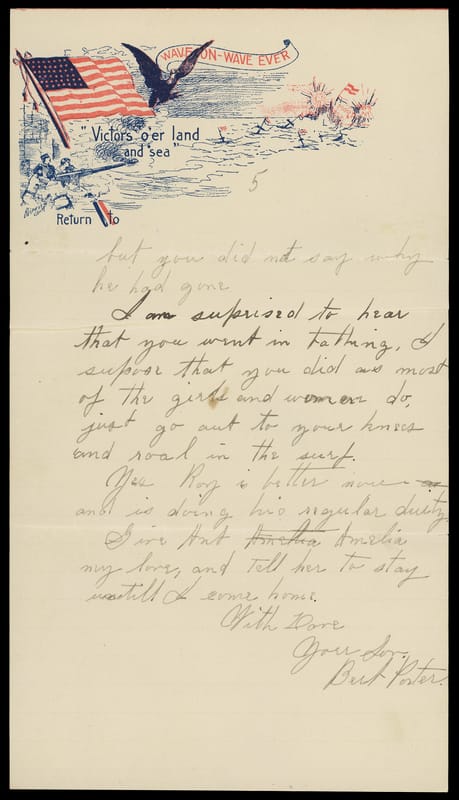 WAVE-ON-WAVE EVER
"Victors o'er land
and sea"
5
Return to
but you did not say why
he had gone
I am suprised to hear
that you went in bathing, I
supose that you did as most
of the girls and women do,
just go out to your knees
and roal in the surf.
Yes Roy is better now
and is doing his regular duity
Give Ant Amelia Amelia
my love, and tell her to stay
untill I come home.
With Love
Your Son.
Burt Porter.